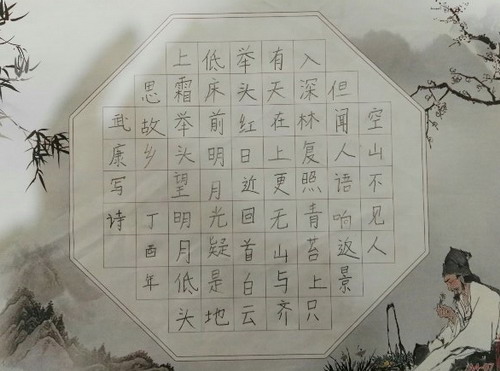 空山不见人
但闻人语响返景
入深林复照青苔上只
有天在上更无山与齐
举头红日近回首白云
低床前明月光疑是地
上霜举头望明月低头
思故乡 丁酉年
武康写诗